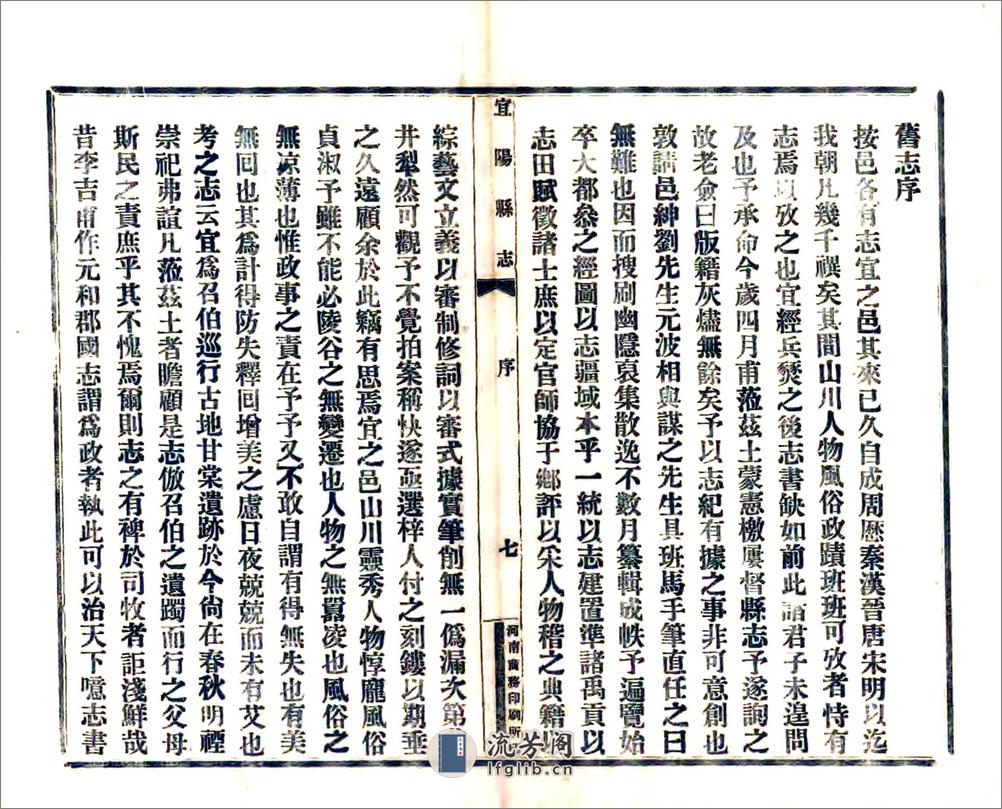 舊志序
按邑各有志宜之邑其來已久自成周歷秦漢晉唐宋明以迄
我朝凡幾千禩矣其間山川人物風俗政蹟班班可攷者恃有
志焉以攷之也宜經兵燹之後志書缺如前此諸君子未遑問
及也予承命今歲四月甫蒞茲土蒙憲檄屢督縣志予遂詢之
故老僉曰版籍灰燼無餘矣予以志紀有據之事非可意創也
敦請邑紳劉先生元波相與謀之先生具班馬手筆直任之曰
無難也因而搜刷幽隱裒集散逸不數月纂輯成帙予遍覽始
卒大都叅之經圖以志疆域本乎一統以志建置準諸禹貢以
志田賦徵諸士庶以定官師協于鄉評以采人物稽之典籍以
宜陽縣志
序
七
河南商務印刷所
綜藝文立義以審制修詞以審式據實筆削無一僞漏次第井
井犁然可觀予不覺拍案稱快遂亟選梓人付之刻鏤以期垂
之久遠顧余於此竊有思焉宜之邑山川靈秀人物惇龐風俗
貞淑予雖不能必陵谷之無變遷也人物之無囂凌也風俗之
無凉薄也惟政事之責在予予又不敢自謂有得無失也有美
無回也其爲計得防失釋回增美之慮日夜兢兢而未有艾也
考之志云宜爲召伯巡行古地甘棠遺跡於今尙在春秋明禋
崇祀弗諠凡蒞茲土者瞻顧是志倣召伯之遺躅而行之父母
斯民之責庶乎其不愧焉爾則志之有裨於司牧者詎淺鮮哉
昔李吉甫作元和郡國志謂爲政者執此可以治天下噫志書
流芳阁
lfglib.cn